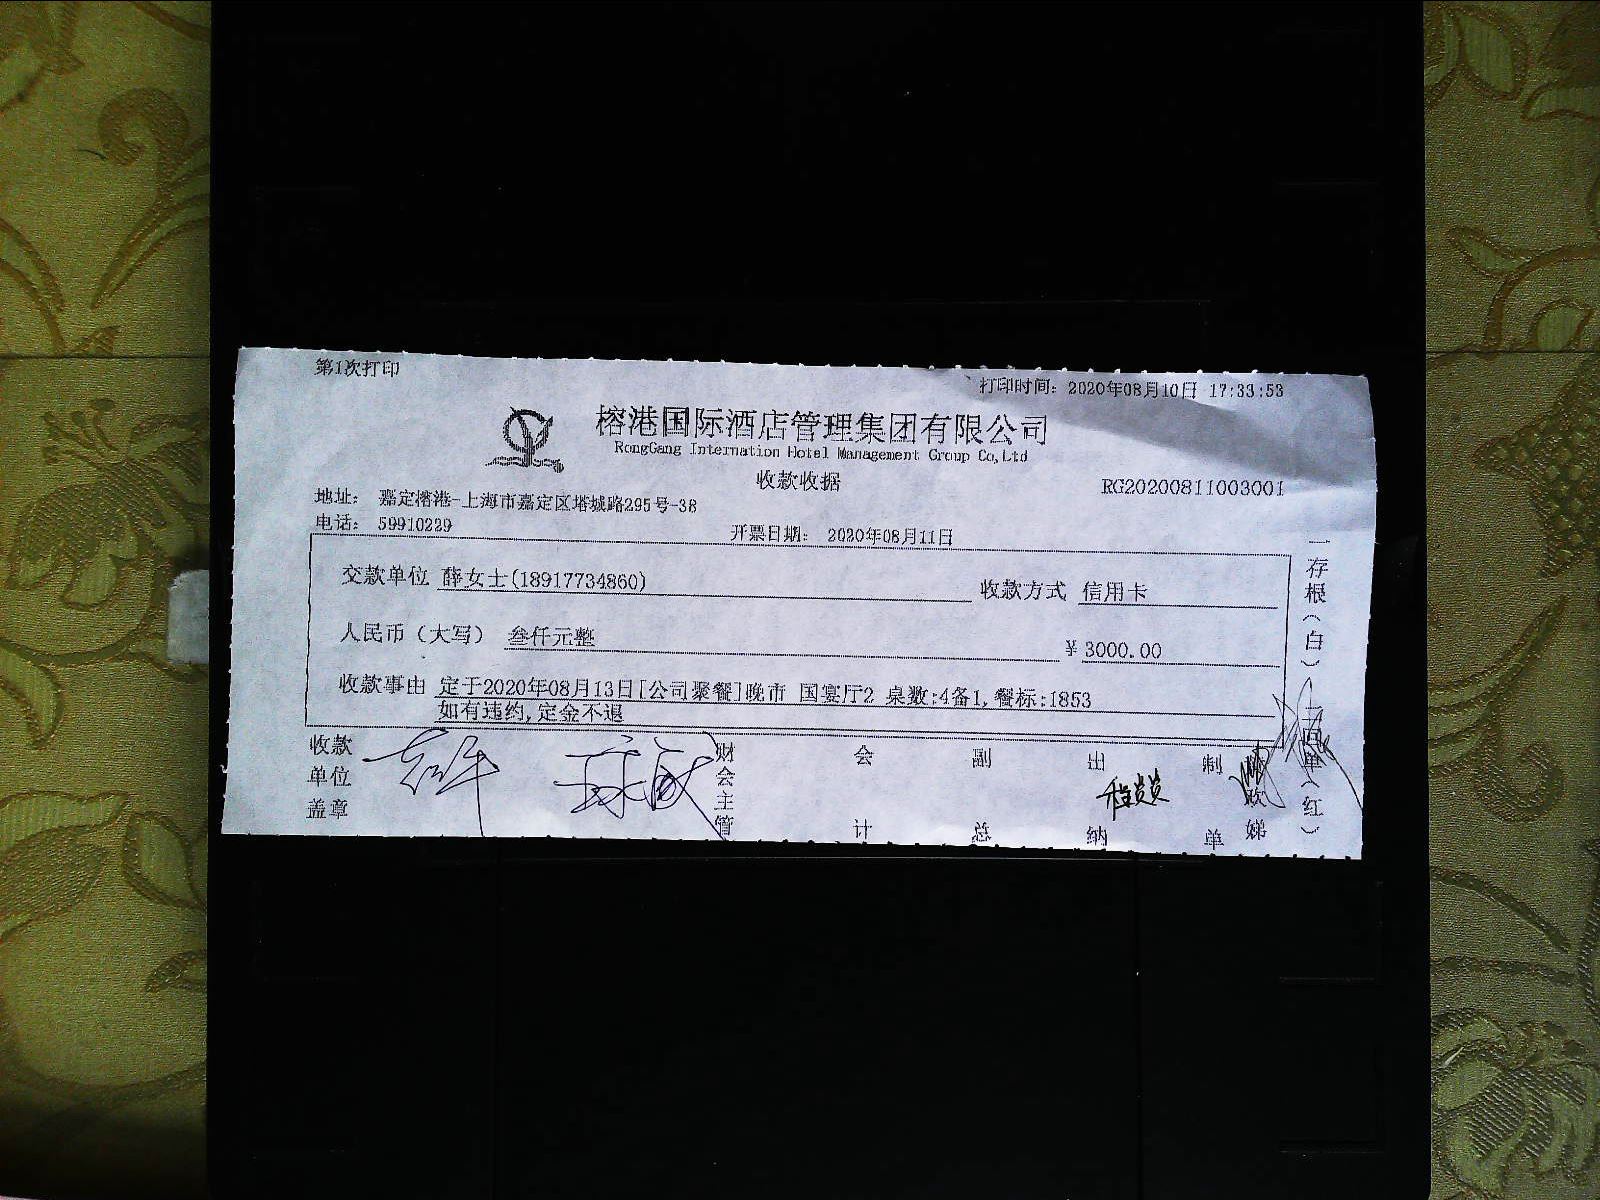 第1次打印
打印时间：2020年08月10日 17:33:53
榕港国际酒店管理集团有限公司
RongGang Internation Hotel Management Group Co,Ltd
收款收据
RG20200811003001
地址： 嘉定榕港-上海市嘉定区塔城路295号-38
电话： 59910229
开票日期： 2020年08月11日
交款单位 薛女士(18917734860)
收款方式 信用卡
人民币（大写） 叁仟元整
¥ 3000.00
收款事由 定于2020年08月13日[公司聚餐]晚市 国宴厅2 桌数:4备1,餐标:1853
如有违约,定金不退
一存根（白）二 单（红）
收款单位盖章
财会主管
会计
副总
出纳
制单